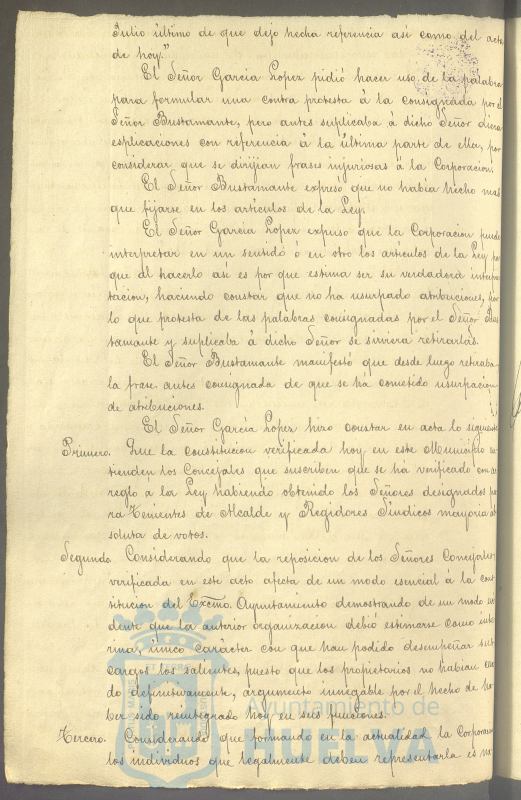 Julio último de que dejo hecha referencia así como del acta
de hoy."
El Señor García Lopez pidió hacer uso de la palabra
para formular una contra protesta á la consignada por el
Señor Bustamante, pero antes suplicaba á dicho Señor diera
esplicaciones con referencia á la última parte de ella, por
considerar que se dirijian frases injuriosas á la Corporacion.
El Señor Bustamante expresó que no había hecho mas
que fijarse en los artículos de la Ley.
El Señor García Lopez expuso que la Corporacion puede
interpretar en un sentido ó en otro los artículos de la Ley por
que al hacerlo así es por que estima ser su verdadera interpre
tacion, haciendo constar que no ha usurpado atribuciones, por
lo que protesta de las palabras consignadas por el Señor Bus
tamante y suplicaba á dicho Señor se sirviera retirarlas.
El Señor Bustamante manifestó que desde luego retiraba
la frase antes consignada de que se ha cometido usurpacion
de atribuciones.
El Señor García Lopez hizo constar en acta lo siguiente
Primero. Que la constitucion verificada hoy en este Municipio en
tienden los Concejales que suscriben que se há verificado con ar
reglo á la Ley habiendo obtenido los Señores designados pa
ra Tenientes de Alcalde y Regidores Síndicos mayoría ab
soluta de votos.
Segundo. Considerando que la reposicion de los Señores Concejales
verificada en este acto afecta de un modo esencial á la cons
titucion del Excmo. Ayuntamiento demostrando de un modo evi
dente que la anterior organizacion debió estimarse como inte
rina, único caracter con que han podido desempeñar sus
cargos los salientes, puesto que los propietarios no habian ce
do definitivamente, argumento innegable por el hecho de ha
ber sido reintegrado hoy en sus funciones.
Tercero. Considerando que formando en la actualidad la Corporacion
los individuos que legalmente deben representarla es in
Ayuntamiento de
HUELVA